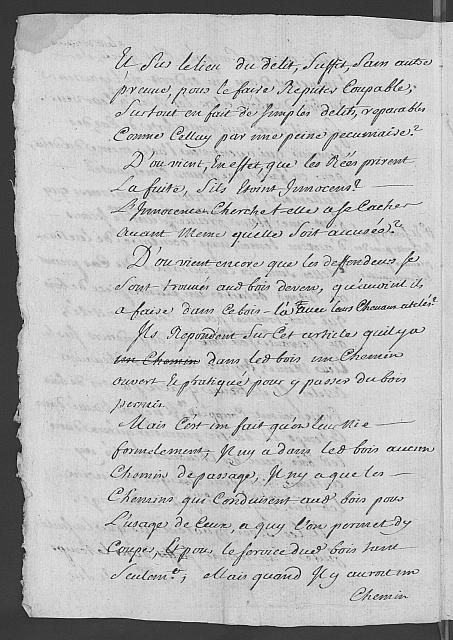 Et Sur le lieu du delit, Suffit, Sans autre
preuve, pour le faire Reputer Coupable;
Surtout en fait de Simples delits, reparables
Comme Celluy par une peine pecuniaire?
D'ou vient, En effet, que les Réés prirent
La fuite, S'ils Etoint Innocens?
L'Innocence Cherche t-elle a se Cacher
avant Meme qu'elle soit accusée?
D'ou vient encore que les deffendeurs Se
Sont trouvés aud bois devens, qu'avoint ils
a faire dans Ce bois-là avec leurs Chevaux atelés?
Ils Repondent Sur Cet article quil y a
un Chemin dans led bois un Chemin
ouvert Et pratiqué pour y passer du bois
permis
Mais C'est un fait qu'on leur Nie
formelement, Il ny a dans led bois aucun
Chemin de passage, Il ny a que les
Chemins qui Conduisent aud bois pour
L'usage de Ceux, a quy l'on permet dy
Couper, Et pour le Service dud bois tant
Seulemt; Mais quand Il y auroit un
Chemin